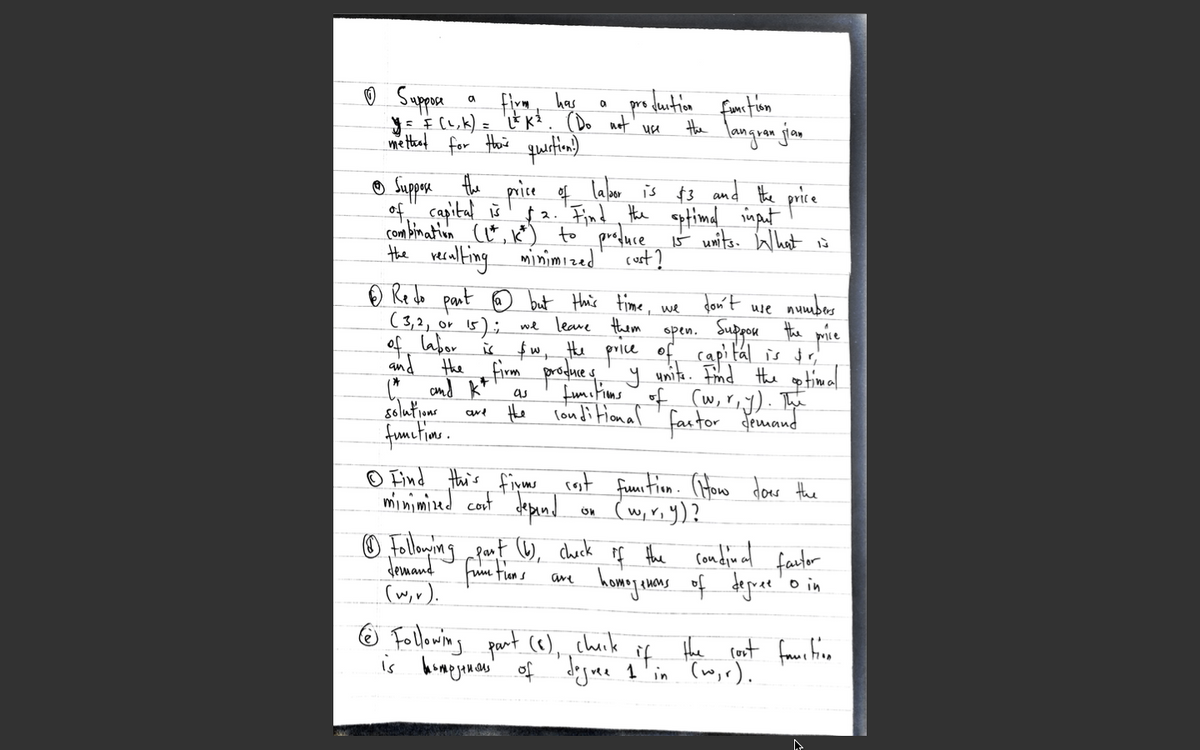 ① Suppose a firm has a production function
y = F(L,K) = L^½ K^½. (Do not use the langranjian
method for this question!)
ⓐ Suppose the price of labor is $3 and the price
of capital is $2. Find the optimal input
combination (L*, K*) to produce 15 units. What is
the resulting minimized cost?
ⓑ Redo part ⓐ but this time, we don't use numbers
(3,2, or 15); we leave them open. Suppose the price
of labor is $w, the price of capital is $r,
and the firm produces y units. Find the optimal
L* and K* as functions of (w,r,y). The
solutions are the conditional factor demand
functions.
ⓒ Find this firms cost function. (How does the
minimized cost depend on (w,r,y)?
ⓓ Following part (b), check if the condinal factor
demand functions are homogenous of degree 0 in
(w,r).
ⓔ Following part (c), check if the cost function
is homogenous of degree 1 in (w,r).